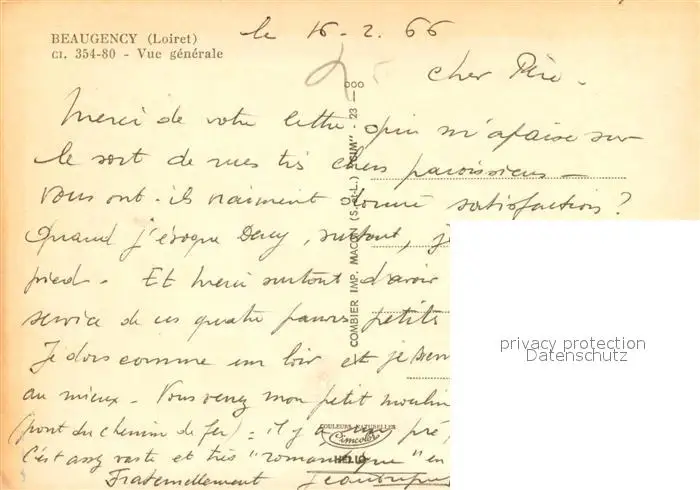 BEAUGENCY (Loiret)
Cl. 354-80 - Vue générale
le 16-2.66
Cher Père.
Merci de votre lettre. qui m'apaise sur
le sort de mes très chers paroissiens -
Vous ont-ils vraiment donné satisfaction?
Quand j'évoque Dercy, surtout, j
pied. Et merci surtout d'avoir
service de ces quatre pauvres petits
Je dors comme un loir et je
au mieux. Vous venez mon petit moulin
(pont du chemin de fer) : il y a un pré,
C'est assez vaste et très "romantique" en
Fraternellement
COMBIER IMP. MACON (S.-&-L.) "CIM" 23 - 000
COULEURS NATURELLES
Cimcolor
HELIO
privacy protection
Datenschutz